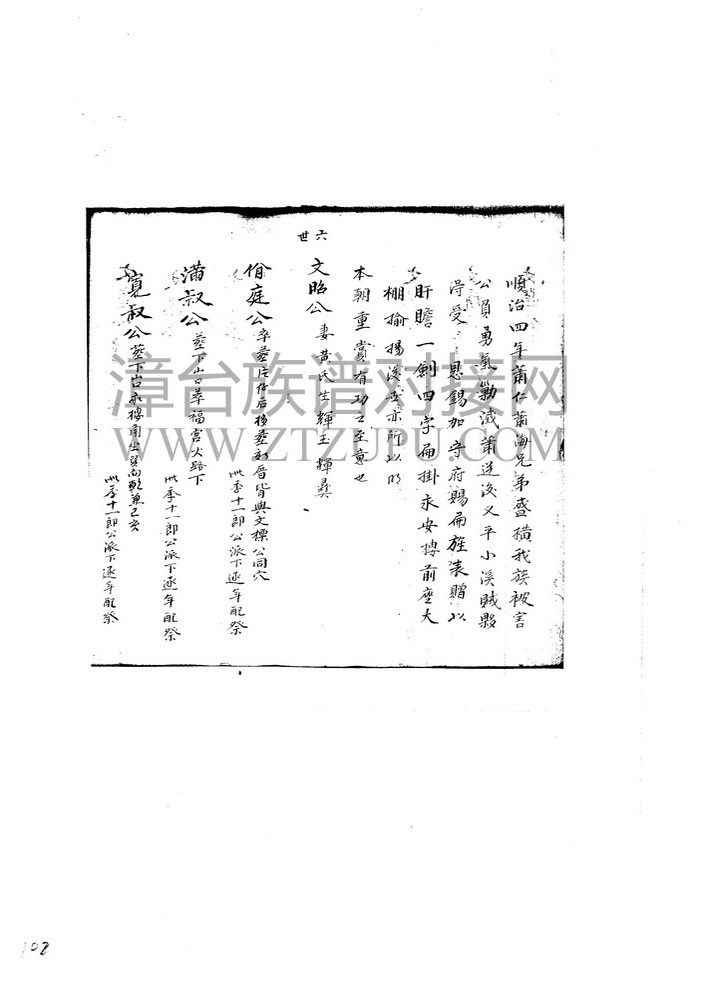 順治四年蕭仁蕭海兄弟盛橫我族被害
公負勇氣勦滅蕭逆後又平小溪賊夥
得受 恩錫加守府賜扁旌表贈以
肝膽一劍四字扁掛永安樓前座大
棚揄揚後世亦所以明
本朝重賞有功之至意也
六世
文昭公 妻黃氏生輝玉 輝彞
庭公 卒葬 后移葬 皆與文標公同穴
此季十一郎公派下逐年配祭
滿叔公 葬下山口萃福宮火路下
此季十一郎公派下逐年配祭
寬叔公 葬下 樓角坐巽向乾兼巳亥
此季十一郎公派下逐年配祭
漳台族谱对接网
WWW.ZTZUPU.COM
102